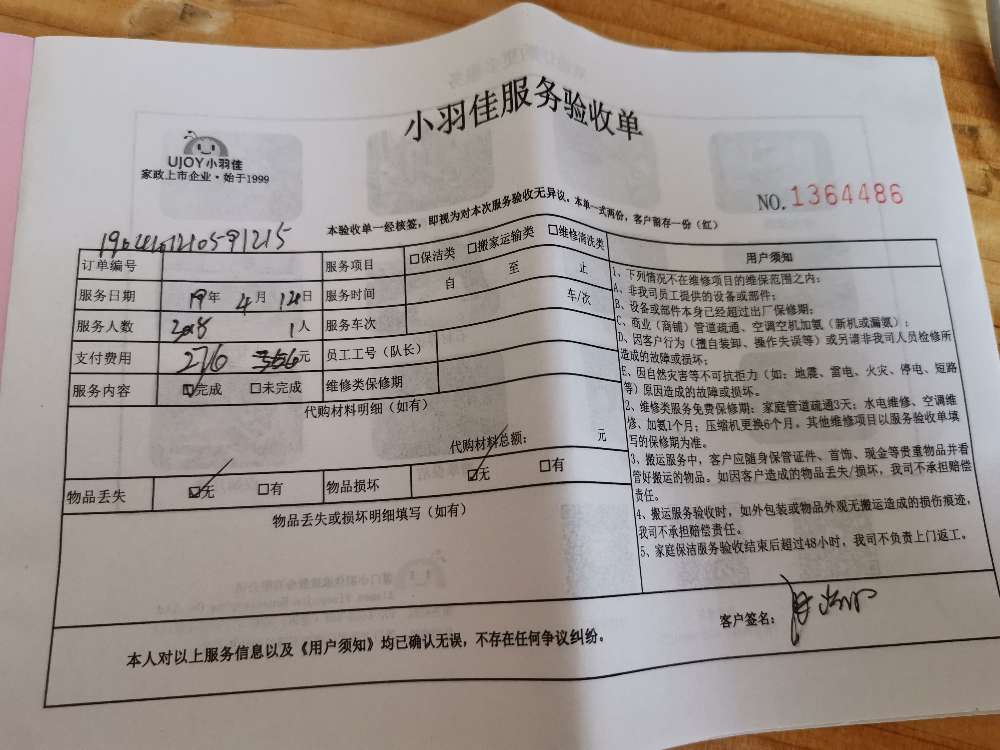 小羽佳服务验收单
UJOY小羽佳
家政上市企业·始于1999
NO.1364486
本验收单一经核签，即视为对本次服务验收无异议。本单一式两份，客户留存一份（红）
订单编号 服务项目 □保洁类 □搬家运输类 □维修清洗类
服务日期 19年 4月 12日 服务时间 自 至 止
服务人数 1人 服务车次 车/次
支付费用 276 356元 员工工号（队长）
服务内容 ☑完成 □未完成 维修类保修期
代购材料明细（如有）
代购材料总额： 元
物品丢失 ☑无 □有 物品损坏 ☑无 □有
物品丢失或损坏明细填写（如有）
用户须知
1、下列情况不在维修项目的维保范围之内：
A、非我司员工提供的设备或部件；
B、设备或部件本身已经超过出厂保修期；
C、商业（商铺）管道疏通、空调空机加氨（新机或漏氨）；
D、因客户行为（擅自装卸、操作失误等）或另请非我司人员检修所
造成的故障或损坏；
E、因自然灾害等不可抗拒力（如：地震、雷电、火灾、停电、短路
等）原因造成的故障或损坏。
2、维修类服务免费保修期：家庭管道疏通3天；水电维修、空调维
修、加氨1个月；压缩机更换6个月。其他维修项目以服务验收单填
写的保修期为准。
3、搬运服务中，客户应随身保管证件、首饰、现金等贵重物品并看
管好搬运的物品。如因客户造成的物品丢失/损坏，我司不承担赔偿
责任。
4、搬运服务验收时，如外包装或物品外观无搬运造成的损伤痕迹，
我司不承担赔偿责任。
5、家庭保洁服务验收结束后超过48小时，我司不负责上门返工。
客户签名：
本人对以上服务信息以及《用户须知》均已确认无误，不存在任何争议纠纷。